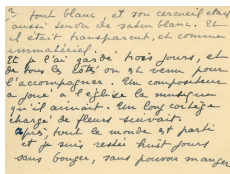 3 tout blanc, et son cercueil était
aussi de satin blanc. Et
il était transparent, et comme
immatériel.
Et je l'ai gardé trois jours, et
de tous les côtés on est venu pour
l'accompagner. Un compositeur
a joué à l'église la musique
qu'il aimait. Un long cortège
chargé de fleurs suivait.
Après, tout le monde est parti
et je suis restée huit jours
sans bouger, sans pouvoir manger